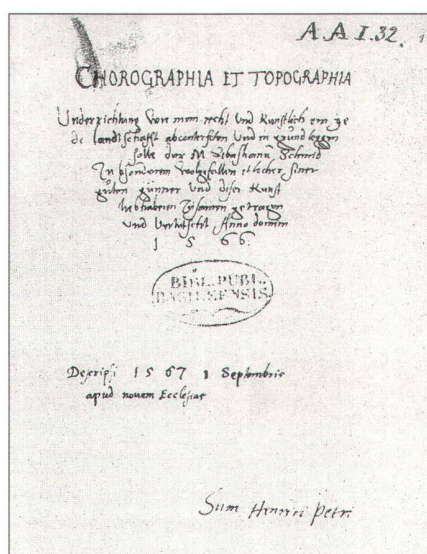 A A I. 32.
CHOROGRAPHIA ET TOPOGRAPHIA
Underrichtung wie man recht und Kunstlich ein ye
de landtschafft abconterfeten und in grund legen
solle durch M Sebastianum Schmid
Zu bsonderem wolgefallen etlicher siner
guten günner und diser Kunst
liebhabern Zusamen getragen
und Anno domini
1 5 6 6.
BIBL. PUBL.
BASILEENSIS
Descripsi 1 5 6 7 1 Septembris
apud novem Ecclesias
Sum Henrici Petri